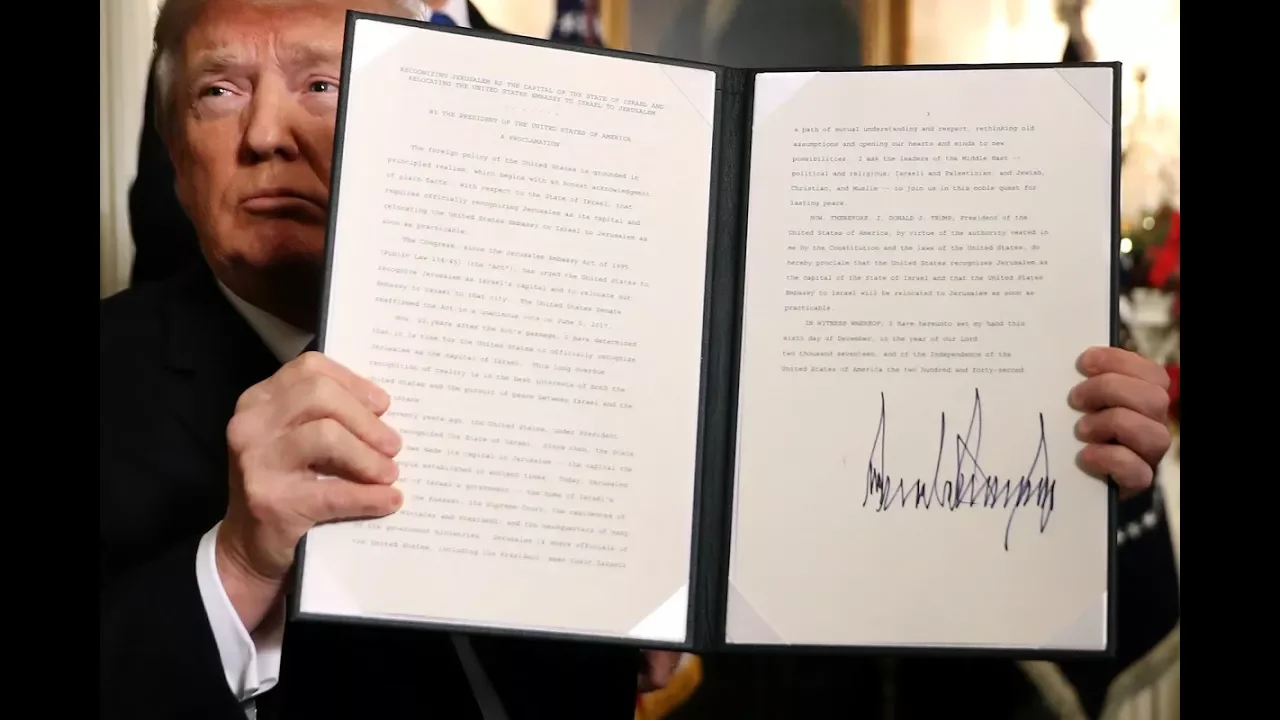 RECOGNIZING JERUSALEM AS THE CAPITAL OF THE STATE OF ISRAEL AND
RELOCATING THE UNITED STATES EMBASSY TO ISRAEL TO JERUSALEM
BY THE PRESIDENT OF THE UNITED STATES OF AMERICA
A PROCLAMATION
The foreign policy of the United States is grounded in
principled realism, which begins with an honest acknowledgment
of plain facts. With respect to the State of Israel, that
requires officially recognizing Jerusalem as its capital and
relocating the United States Embassy to Israel to Jerusalem as
soon as practicable.
The Congress, since the Jerusalem Embassy Act of 1995
(Public Law 104-45) (the "Act"), has urged the United States to
recognize Jerusalem as Israel's capital and to relocate our
Embassy to Israel to that city. The United States Senate
reaffirmed the Act in a unanimous vote on June 5, 2017.
Now, 22 years after the Act's passage, I have determined
that it is time for the United States to officially recognize
Jerusalem as the capital of Israel. This long overdue
recognition of reality is in the best interests of both the
United States and the pursuit of peace between Israel and the
Seventy years ago, the United States, under President
recognized the State of Israel. Since then, the State
has made its capital in Jerusalem -- the capital the
established in ancient times. Today, Jerusalem
of Israel's government -- the home of Israel's
the Knesset, its Supreme Court, the residences of
Minister and President, and the headquarters of many
of its government ministries. Jerusalem is where officials of
the United States, including the President, meet their Israeli
3
a path of mutual understanding and respect, rethinking old
assumptions and opening our hearts and minds to new
possibilities. I ask the leaders of the Middle East --
political and religious; Israeli and Palestinian; and Jewish,
Christian, and Muslim -- to join us in this noble quest for
lasting peace.
NOW, THEREFORE, I, DONALD J. TRUMP, President of the
United States of America, by virtue of the authority vested in
me by the Constitution and the laws of the United States, do
hereby proclaim that the United States recognizes Jerusalem as
the capital of the State of Israel and that the United States
Embassy to Israel will be relocated to Jerusalem as soon as
practicable.
IN WITNESS WHEREOF, I have hereunto set my hand this
sixth day of December, in the year of our Lord
two thousand seventeen, and of the Independence of the
United States of America the two hundred and forty-second.